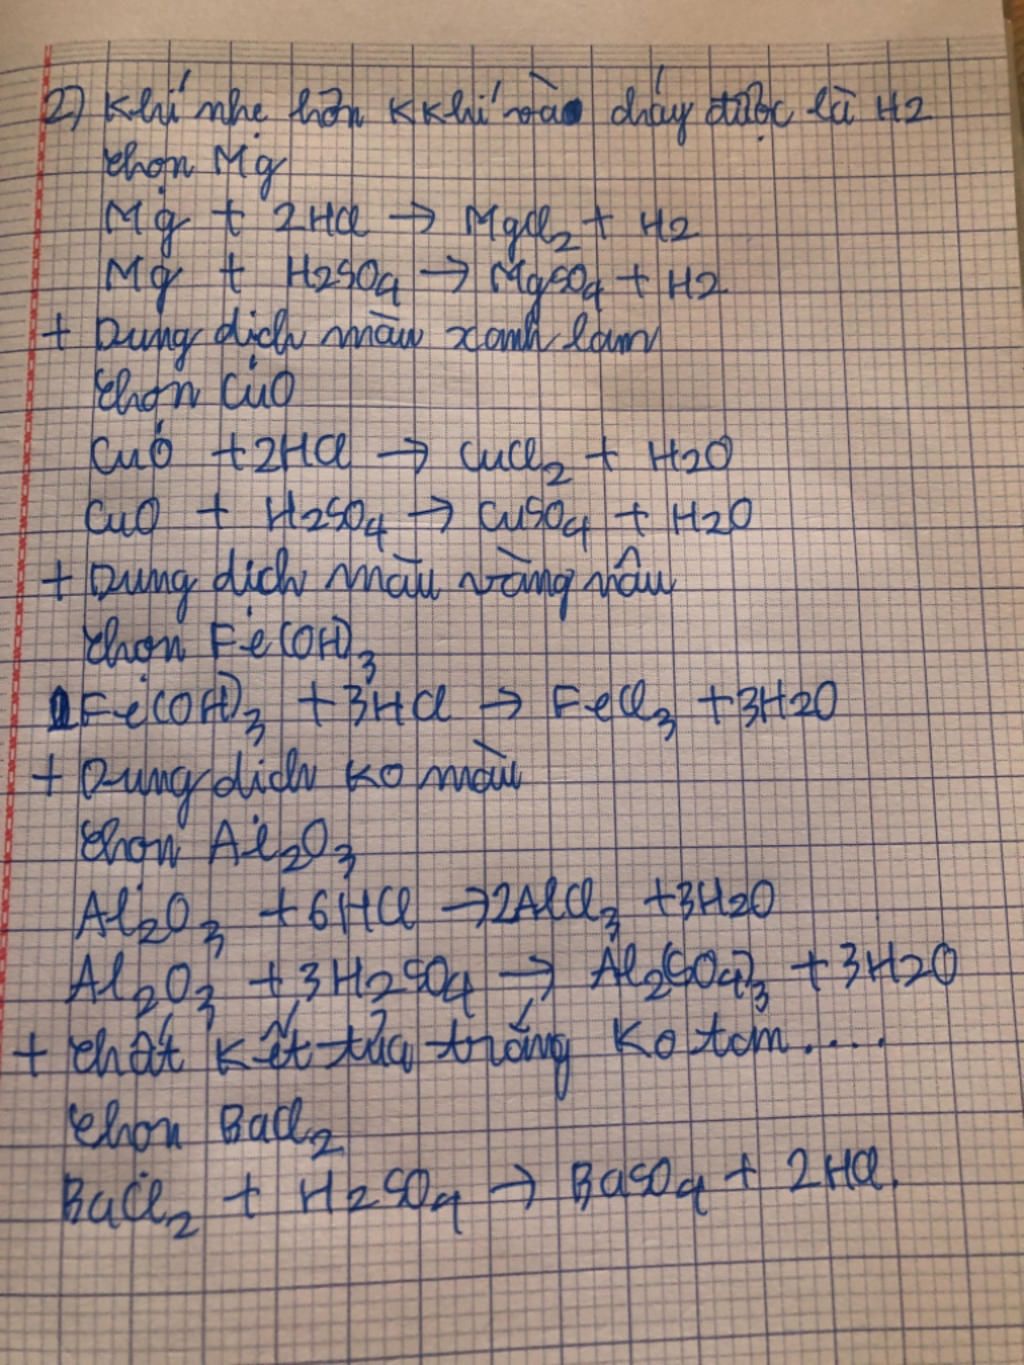 2) Khí nhẹ hơn KKhí và cháy được là H2
chọn Mg
Mg + 2HCl → MgCl2 + H2
Mg + H2SO4 → MgSO4 + H2
+ Dung dịch màu xanh lam
chọn CuO
CuO + 2HCl → CuCl2 + H2O
CuO + H2SO4 → CuSO4 + H2O
+ Dung dịch màu vàng nâu
chọn Fe(OH)3
Fe(OH)3 + 3HCl → FeCl3 + 3H2O
+ Dung dịch ko màu
chọn Al2O3
Al2O3 + 6HCl → 2AlCl3 + 3H2O
Al2O3 + 3H2SO4 → Al2(SO4)3 + 3H2O
+ chất kết tủa trắng ko tan....
chọn BaCl2
BaCl2 + H2SO4 → BaSO4 + 2HCl.